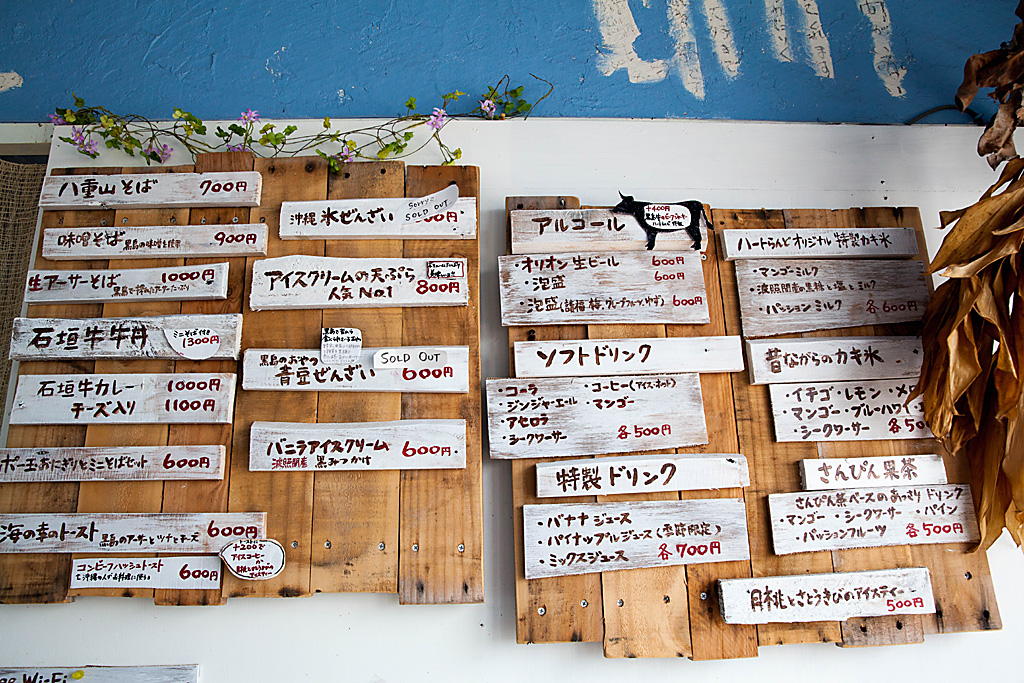 八重山そば 700円
味噌そば 黒島の味噌を使用 900円
生アーサそば 1000円
黒島で採れたアーサたっぷり
石垣牛牛丼
ミニそば付き
1300円
石垣牛カレー 1000円
チーズ入り 1100円
ポー玉おにぎりとミニそばセット 600円
海の幸のトースト 黒島のアーサとツナとチーズ 600円
+200で
アイスコーヒー
か
アイスティー
コンビーフハッシュトースト
600円
沖縄 氷ぜんざい
SORRY
SOLD OUT
アイスクリームの天ぷら
人気No.1 800円
黒島のおやつ
青豆ぜんざい 600円
SOLD OUT
バニラアイスクリーム 600円
波照間産 黒みつかけ
アルコール
+400円
・オリオン生ビール 600円
・泡盛 600円
・泡盛(請福 梅、グレープフルーツ、ゆず) 600円
ソフトドリンク
・コーラ ・コーヒー(アイス・ホット)
・ジンジャーエール ・マンゴー
・アセロラ
・シークワーサー 各500円
特製ドリンク
・バナナジュース
・パイナップルジュース(季節限定)
・ミックスジュース 各700円
ハートらんどオリジナル特製カキ氷
・マンゴーミルク
・波照間産の黒糖と塩とミルク
・パッションミルク 各600円
昔ながらのカキ氷
・イチゴ・レモン・メ
・マンゴー・ブルーハワイ
・シークワーサー 各50
さんぴん果茶
さんぴん茶ベースのあっさりドリンク
・マンゴー ・シークワーサー ・パイン
・パッションフルーツ 各500円
月桃とさとうきびのアイスティー
500円
Wi-Fi